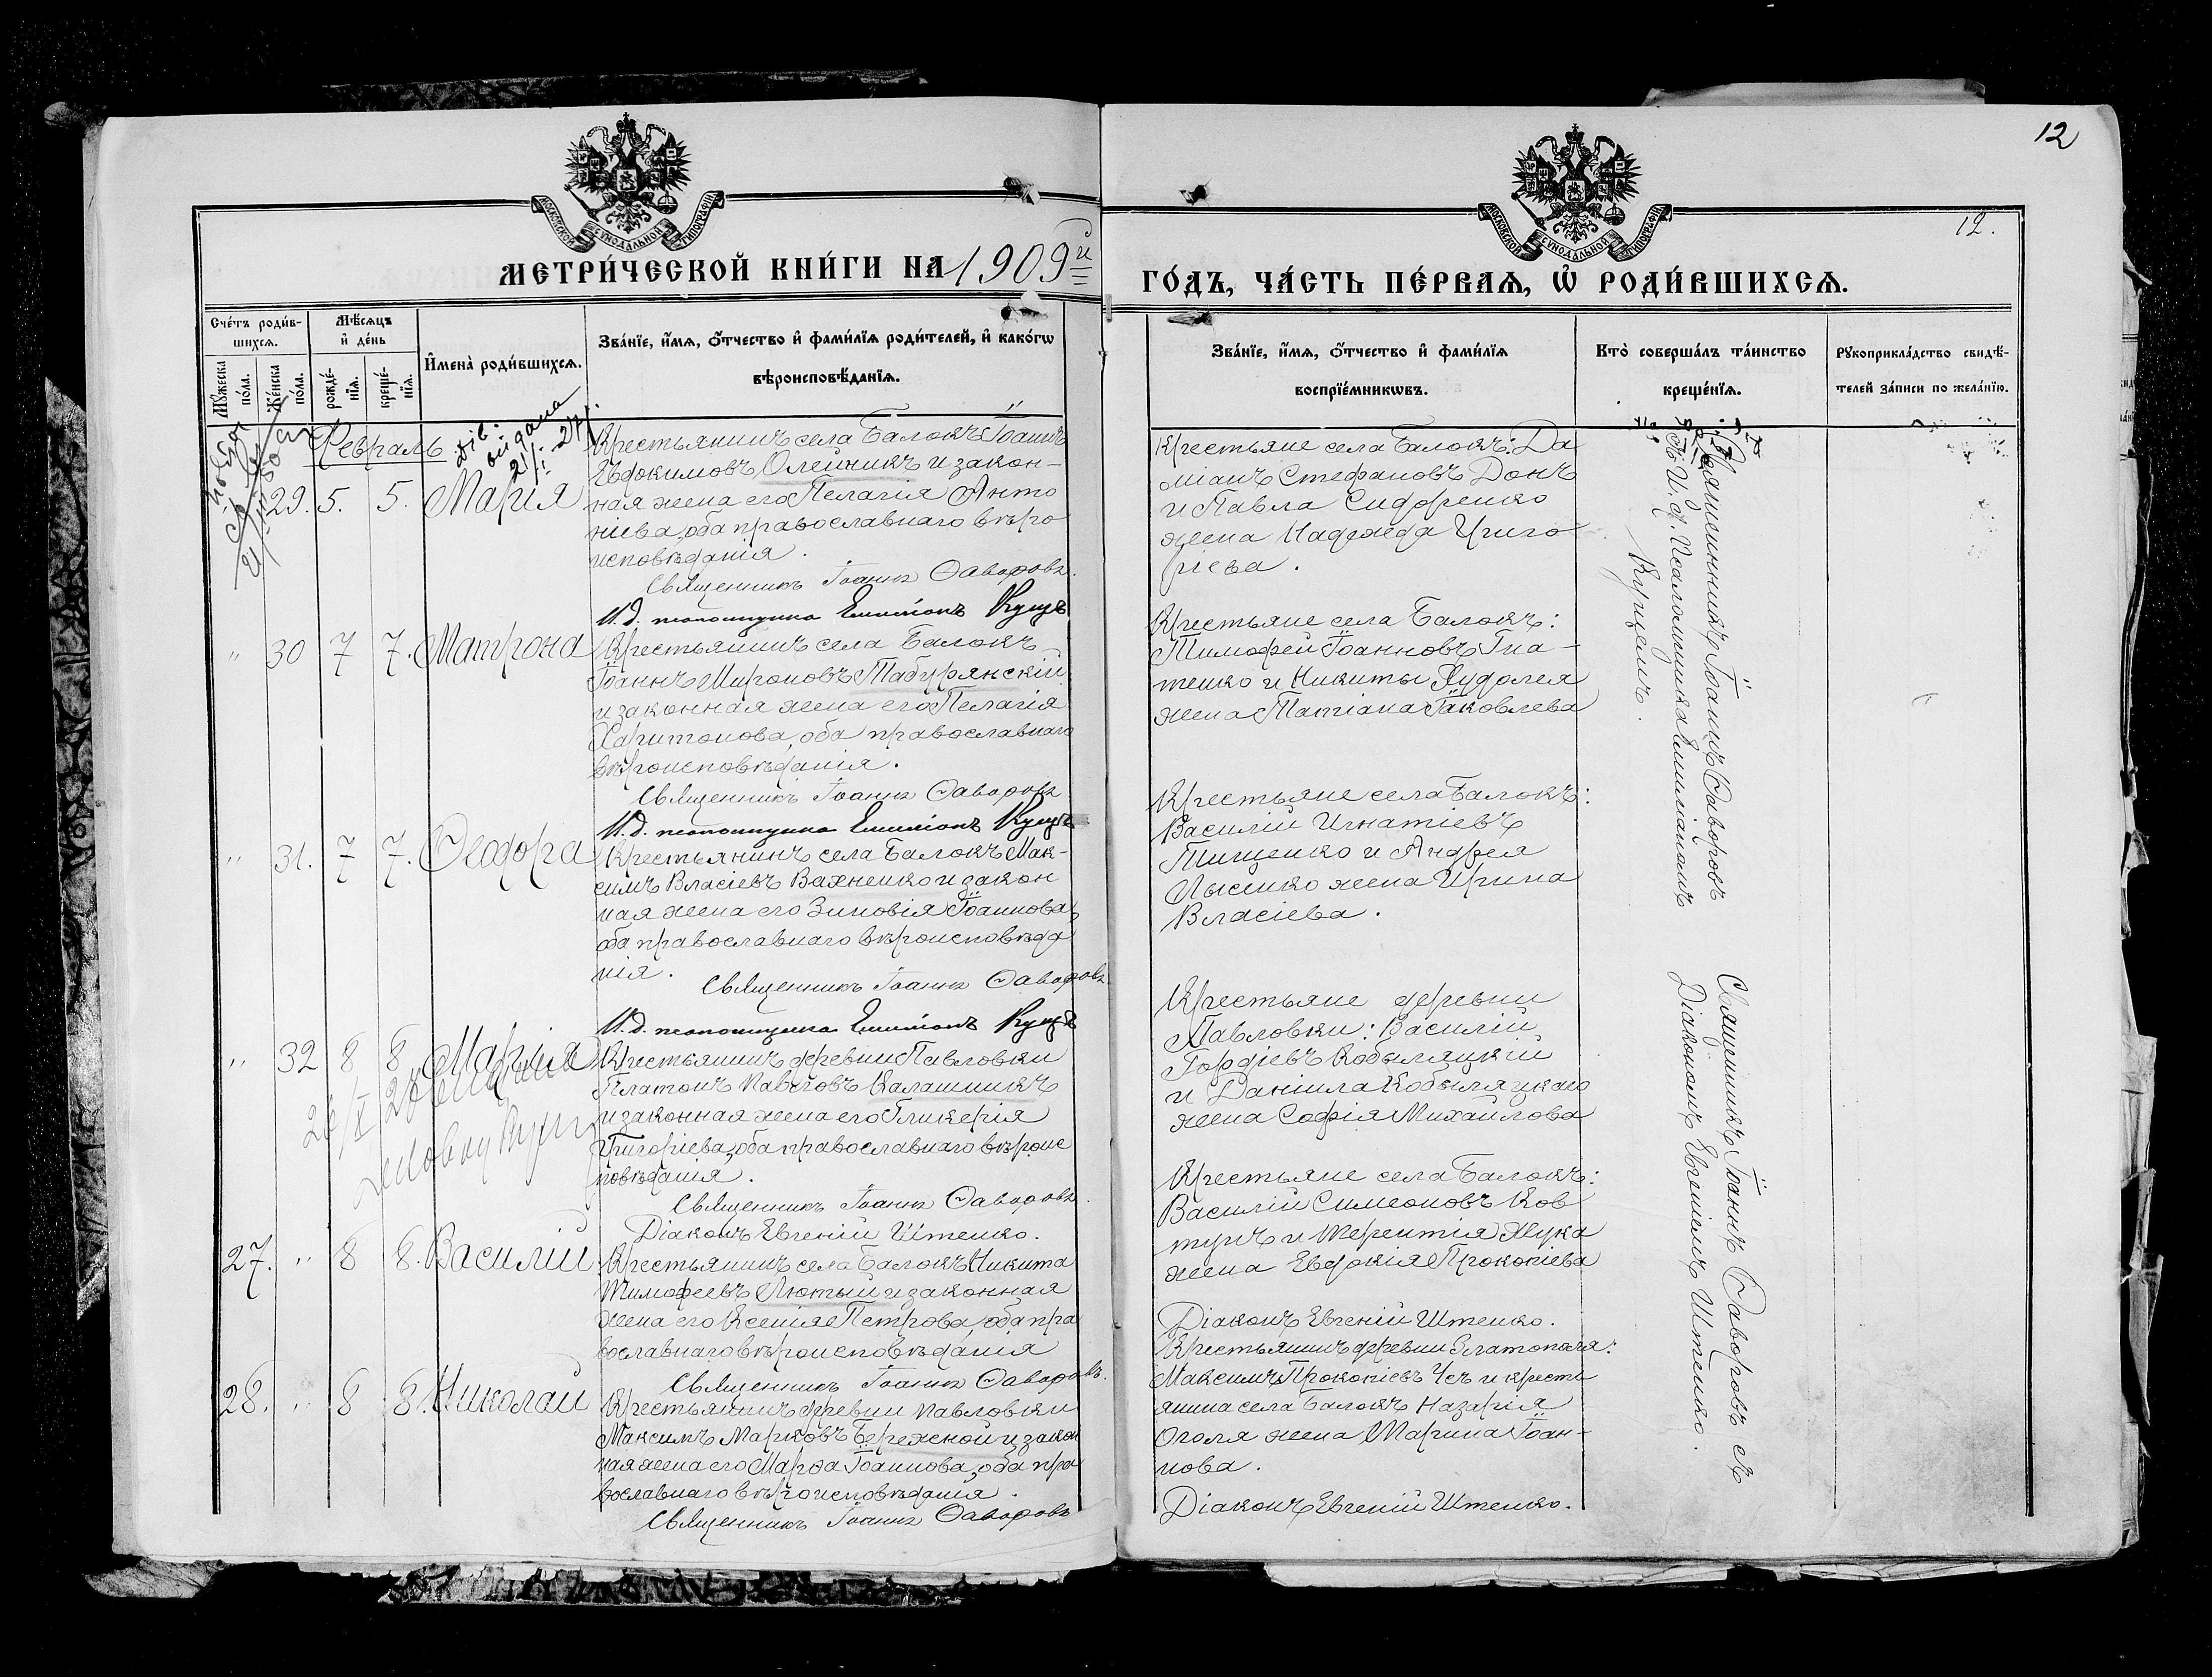 12
12.
МОСКОВСКОЙ СѴНОДАЛЬНОЙ ТИПОГРАФІИ
МОСКОВСКОЙ СѴНОДАЛЬНОЙ ТИПОГРАФІИ
МЕТРИ́ЧЕСКОЙ КНИ́ГИ НА 1909й
ГО́ДЪ, ЧА́СТЬ ПЕ́РВАѦ, Ѡ҆ РОДИ́ВШИХСѦ.
Сче́тъ роди́в-
шихсѧ.
Мѹ́жеска
по́ла.
Же́нска
по́ла.
Мѣ́сѧцъ
и҆ де́нь
рожде́-
нїѧ.
креще́-
нїѧ.
И҆мена̀ роди́вшихсѧ.
Зва́нїе, и҆́мѧ, ѻ҆́тчество и҆ фами́лїѧ роди́телей, и҆ како́гѡ
вѣроисповѣ́данїѧ.
Зва́нїе, и҆́мѧ, ѻ҆́тчество и҆ фами́лїѧ
воспрїе́мникѡвъ.
Кто̀ соверша́лъ та́инство
креще́нїѧ.
Рѹкоприкла́дство свидѣ́-
телей за́писи по жела́нїю.
Февраль
29. 5. 5. Марія
Крестьянинъ села Балокъ Іоаннъ
Евдокимовъ Олейникъ и закон-
ная жена его Пелагія Анто
ніева, оба православнаго вѣро
исповѣданія.
Священникъ Іоаннъ Ѳаворовъ.
И.д. псаломщика Емиліонъ Куцъ
Крестьяне села Балокъ: Да
міанъ Стефановъ Донъ
и Павла Сидоренко
жена Надежда Григо
ріева.
" 30 7 7. Матрона
Крестьянинъ села Балокъ
Іоаннъ Мироновъ Табурянскій
и законная жена его Пелагія
Харитонова, оба православнаго
вѣроисповѣданія.
Священникъ Іоаннъ Ѳаворовъ
И.д. псаломщика Емиліонъ Куцъ
Крестьяне села Балокъ:
Тимофей Іоанновъ Гна-
тенко и Никиты Худолея
жена Татіана Іаковлева
" 31. 7 7. Ѳеодора
Крестьянинъ села Балокъ Мак-
симъ Власіевъ Вахненко и закон
ная жена его Зиновія Іоаннова,
оба православнаго вѣроисповѣда
нія.
Священникъ Іоаннъ Ѳаворовъ
И.д. псаломщика Емиліонъ Куцъ
Крестьяне села Балокъ:
Василій Игнатіевъ
Тищенко и Андрея
Лысенко жена Ирина
Власіева.
Священникъ Іоаннъ Ѳаворовъ
съ И. д. Псаломщика Емиліаномъ
Куцемъ.
" 32 8 8 Марія
Крестьянинъ деревни Павловки
Платонъ Павловъ Калашникъ
и законная жена его Гликерія
Григоріева, оба православнаго вѣроис
повѣданія.
Священникъ Іоаннъ Ѳаворовъ.
Діаконъ Евгеній Штенко.
Крестьяне деревни
Павловки: Василій
Гордіевъ Кобыляцкій
и Даніила Кобыляцкаго
жена Софія Михайлова
27. " 8 8. Василій
Крестьянинъ села Балокъ Никита
Тимофеевъ Лютый и законная
жена его Ксенія Петрова, оба пра
вославнаго вѣроисповѣданія
Священникъ Іоаннъ Ѳаворовъ.
Крестьяне села Балокъ:
Василій Симеоновъ Ков
тунъ и Терентія Жука
жена Евдокія Прокопіева
Діаконъ Евгеній Штенко.
28. " 8 8. Николай
Крестьянинъ деревни Павловки
Максимъ Марковъ Бережной и закон
ная жена его Марѳа Іоаннова, оба пра
вославнаго вѣроисповѣданія.
Священникъ Іоаннъ Ѳаворовъ
Крестьянинъ деревни Златополя:
Максимъ Прокопіевъ Чечъ и кресть
янина села Балокъ Назарія
Оголя жена Марина Іоан-
нова.
Діаконъ Евгеній Штенко.
Священникъ Іоаннъ Ѳаворовъ съ
Діакономъ Евгеніемъ Штенко.